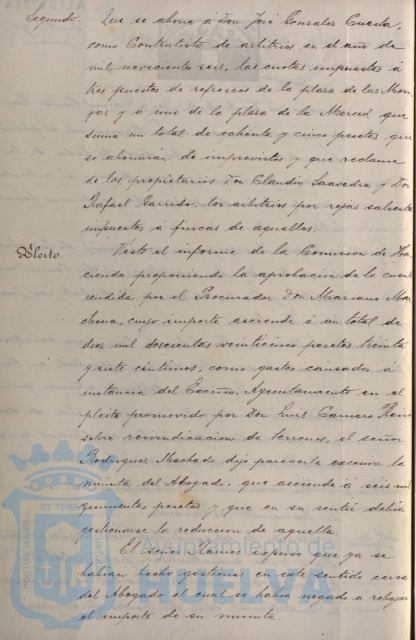 Segundo. Que se abone á Don José Gonzalez Cuesta,
como Contratista de arbitrios en el año de
mil novecientos seis, las cuotas impuestas á
tres puestos de refrescos de la plaza de las Mon-
jas y á uno de la plaza de la Merced que
suma un total de ochenta y cinco pesetas que
se abonarán de imprevistos y que reclame
de los propietarios Don Claudio Saavedra y Don
Rafael Garrido, los arbitrios por rejas salientes
impuestos á fincas de aquellos.
Pleito. Visto el informe de la Comision de Ha-
cienda proponiendo la aprobacion de la cuenta
rendida por el Procurador Don Mariano Mar-
chena, cuyo importe asciende á un total de
dos mil doscientas veinticinco pesetas treinta
y siete céntimos, como gastos causados á
instancia del Excmo. Ayuntamiento en el
pleito promovido por Don Luis Camero
sobre reivindicacion de terrenos, el señor
Rodriguez Machado dijo parecerle excesiva la
minuta del Abogado, que asciende á seis mil
quinientas pesetas y que en su sentir debia
gestionarse la reduccion de aquella.
El señor Ramos expuso que ya se
habian hecho gestiones en este sentido cerca
del Abogado el cual se habia negado á rebajar
el importe de su minuta.
Ayuntamiento de
HUELVA